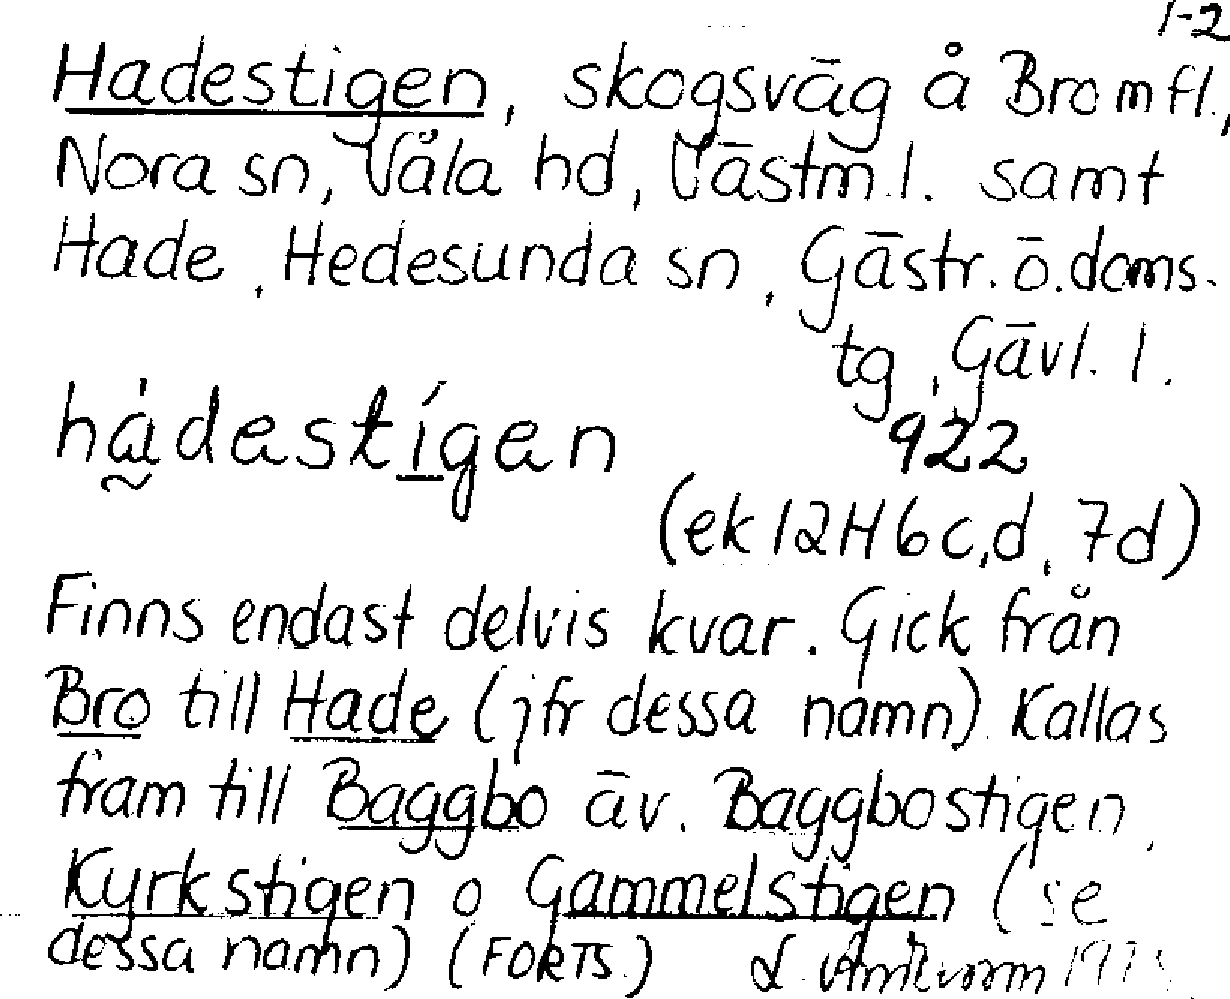 1-2
Hadestigen, skogsväg å Bro m fl.,
Nora sn, Våla hd, Västm. l. samt
Hade, Hedesunda sn, Gästr. ö. doms.
tg, Gävl. l.
hådestígen 922
(ek 12H 6c,d, 7d)
Finns endast delvis kvar. Gick från
Bro till Hade (jfr dessa namn). Kallas
fram till Baggbo äv. Baggbostigen,
Kyrkstigen o Gammelstigen (se
dessa namn) (FORTS.)